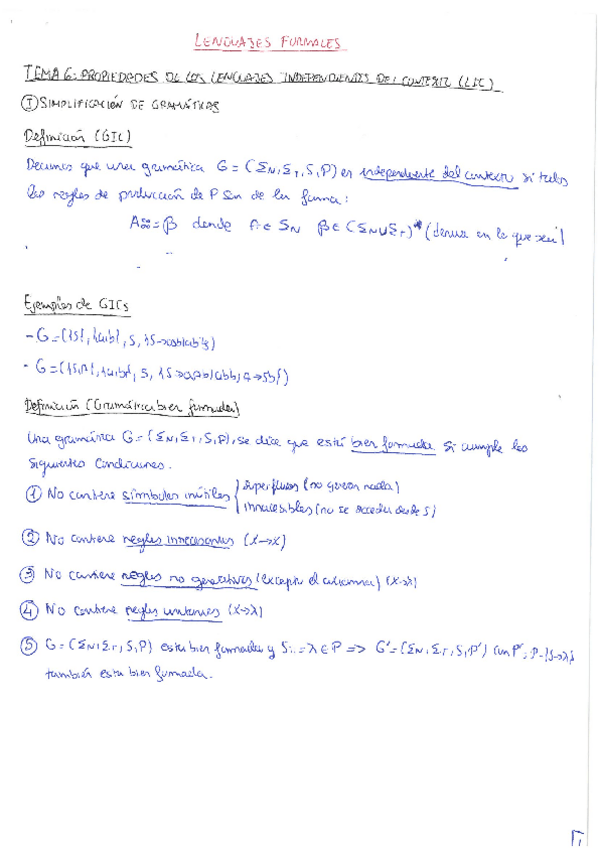 LENGUAJES FORMALES
TEMA 6: PROPIEDADES DE LOS LENGUAJES INDEPENDIENTES DEL CONTEXTO (LIC)
① SIMPLIFICACIÓN DE GRAMÁTICAS
Definición (GIC)
Decimos que una gramática G = (ΣN, ΣT, S, P) es independiente del contexto si todas
las reglas de producción de P son de la forma:
A ::= β donde A ∈ ΣN β ∈ (ΣN∪ΣT)* (deriva en lo que sea)
Ejemplos de GICs
- G = ({S}, {a,b}, S,
- G =
Definición (Gramática bien formada)
Una gramática G = (ΣN, ΣT, S, P), se dice que está bien formada si cumple las
siguientes condiciones.
① No contiene símbolos inútiles { superfluos (no generan nada)
inaccesibles (no se accede desde S)
② No contiene reglas innecesarias (X→X)
③ No contiene reglas no generativas (excepto el axioma) (X→λ)
④ No contiene reglas unitarias (X→λ)
⑤ G = (ΣN, ΣT, S, P) está bien formada y S::=λ ∈ P => G' = (ΣN, ΣT, S, P') con P' = P-{S→λ}
también esta bien formada.